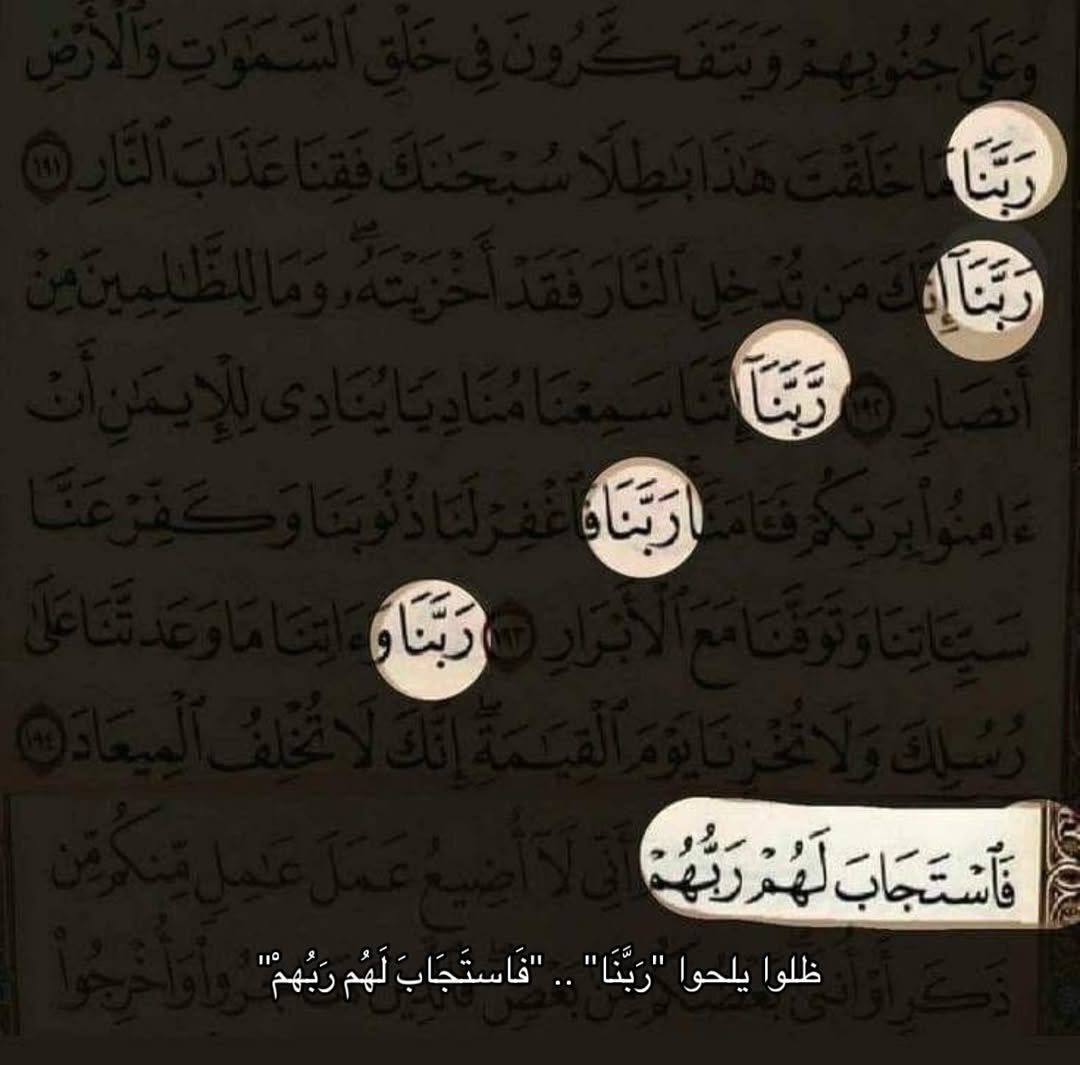 وَعَلَىٰ جُنُوبِهِمْ وَيَتَفَكَّرُونَ فِى خَلْقِ ٱلسَّمَٰوَٰتِ وَٱلْأَرْضِ
رَبَّنَا مَا خَلَقْتَ هَٰذَا بَٰطِلًا سُبْحَٰنَكَ فَقِنَا عَذَابَ ٱلنَّارِ ١٩١
رَبَّنَآ إِنَّكَ مَن تُدْخِلِ ٱلنَّارَ فَقَدْ أَخْزَيْتَهُۥ ۖ وَمَا لِلظَّٰلِمِينَ مِنْ
أَنصَارٍ ١٩٢ رَّبَّنَآ إِنَّنَا سَمِعْنَا مُنَادِيًا يُنَادِى لِلْإِيمَٰنِ أَنْ
ءَامِنُوا۟ بِرَبِّكُمْ فَـَٔامَنَّا ۚ رَبَّنَا فَٱغْفِرْ لَنَا ذُنُوبَنَا وَكَفِّرْ عَنَّا
سَيِّـَٔاتِنَا وَتَوَفَّنَا مَعَ ٱلْأَبْرَارِ ١٩٣ رَبَّنَا وَءَاتِنَا مَا وَعَدتَّنَا عَلَىٰ
رُسُلِكَ وَلَا تُخْزِنَا يَوْمَ ٱلْقِيَٰمَةِ ۗ إِنَّكَ لَا تُخْلِفُ ٱلْمِيعَادَ ١٩٤
فَٱسْتَجَابَ لَهُمْ رَبُّهُمْ أَنِّى لَآ أُضِيعُ عَمَلَ عَٰمِلٍ مِّنكُم مِّن
ذَكَرٍ أَوْ أُنثَىٰ بَعْضُكُم مِّنۢ بَعْضٍ فَٱلَّذِينَ هَاجَرُوا۟ وَأُخْرِجُوا۟
ظلوا يلحوا "رَبَّنَا" .. "فَاستَجَابَ لَهُم رَبُهمْ"